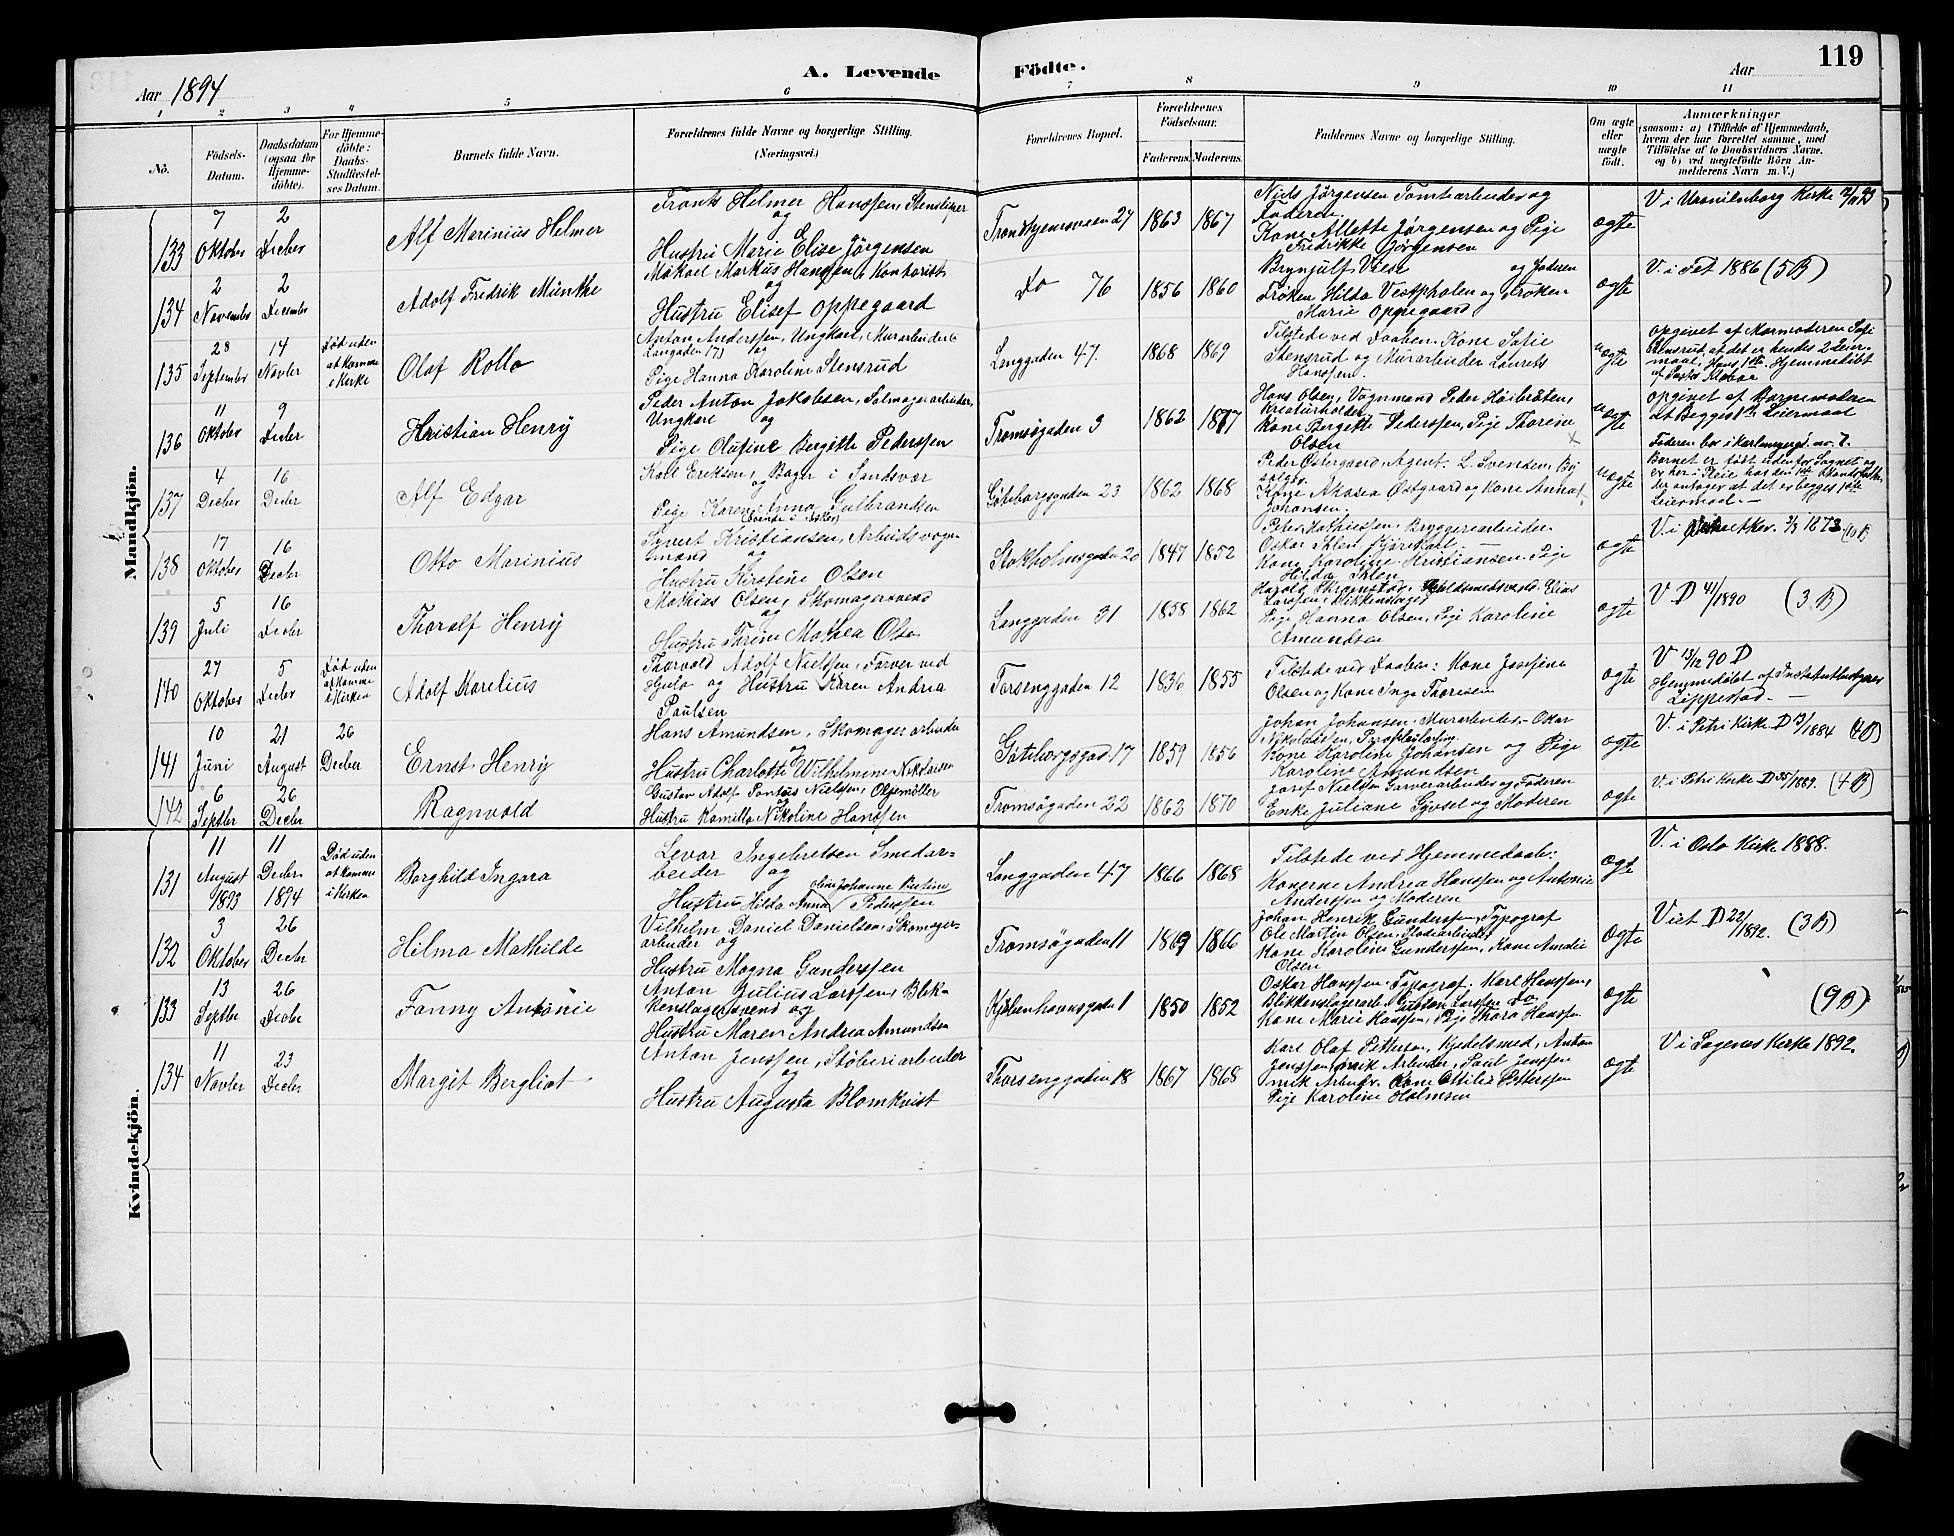 119
Aar 1894
A. Levende Födte.
Aar
1 2 3 4 5 6 7 8 9 10 11
No.
Födsels-Datum.
Daabsdatum (ogsaa for Hjemme-döbte).
For Hjemme-döbte: Daabs-Stadfæstel-ses Datum.
Barnets fulde Navn.
Forældrenes fulde Navne og borgerlige Stilling. (Næringsvei.)
Forældrenes Bopæl.
Forældrenes Födselsaar.
Faderens. Moderens.
Faddernes Navne og borgerlige Stilling.
Om ægte eller uægte født.
Anmærkninger (saasom: a) i Tilfælde af Hjemmedaab, hvem der har forrettet samme, med Tilföielse af to Daabsvidners Navne, og b) ved uegtefödte Börn An-melderens Navn m. V.)
Mandkjön.
133
7 Oktober
2 Decbr
Alf Marinius Helmer
Frants Helmer Hanssen, Stensliper
og
Hustru Marie Elise Jørgensen
Trondhjemsveien 27
1863 1867
Niels Jørgensen Tomtearbeider og
Faderen.
Kone Allette Jørgensen og Pige
Fredrikke Jørgensen
ægte
V i Uranienborg Kirke
134
2 November
2 December
Adolf Fredrik Münthe
Mikael Markus Hanssen, Kontorist
og
Hustru Elisef Oppegaard
Do 76
1856 1860
Brynjulf Viese og Faderen
Frøken Hilda Vestphalen og Frøken
Marie Oppegaard
ægte
V. i Fet 1886 (5 B)
135
28 September
14 Novbr
Død uden at komme i Kirke
Olaf Rollo
Anton Anderssen, Ungkarl, Murarbeider
Langgaden 17)
og
Pige Hanna Karoline Stensrud
Langgaden 47.
1868 1869
Tilstede ved Daaben. Kone Sofie
Stensrud og Murarbeider Laurets
Hanssen.
uægte
opgivet af Mormoderen Sofi
Stensrud, at det er hendes 2 Leier-
maal. Hans 1ste. Hjemmedøbt
af Pastor
136
11 Oktober
9 Decbr
Kristian Henry
Peder Anton Jakobsen, Salmagerarbeider,
Ungkarl og
Pige Olufine Bergitte Pederssen
Tromsøgaden 9
1862 1867
Hans Olsen, Vognmand Peder Høibraaten,
Kreaturholder
Kone Bergette Pederssen, Pige Thorine
Olsen
uægte
opgivet af Barnemoderen
at Begges 1ste Leiermaal
137
4 Decbr
16 Decbr
Alf Edgar
Karl Eriksen, Bager i Sandsvær
og
Pige Karen Anna Gulbrandsen
Gøteborgsgaden 23
1862 1868
Peder Østergaard, Agent. L. Svensen, By
Kone Aksea Østgaard og Kone Anna
Johansen.
uægte
Faderen bor i
Barnet er født udenfor Sognet og
er her i Pleie hos
der antager at det er begges 1ste
Leiermaal.—
138
17 Oktober
16 Decbr
Otto Marinius
Syvert Kristiansen, Arbeidsvogn-
mand og
Hustru Kirstine Olsen
Stokholmsgaden 20
1847 1852
Peter Mathiessen, Bryggeriarbeider
Oskar Iklen, Kjørekarl.
Kone Karoline Kristiansen. Pige
Hilda Iklen
ægte
139
5 Juli
16 Decbr
Thoralf Henry
Mathias Olsen, Skomagersvend
og
Hustru Torine Mathea Olsen
Langgaden 31
1858 1862
Harald Skramstad, Guldsmedsvend. Elias
Larssen, Blikkenslager
Pige Hanna Olsen, Pige Karoline
Amundsen
ægte
V D 41/1890 (3 B)
140
27 Oktober
5 Decbr
Død uden at komme i Kirken
Adolf Karelius
Thorvold Adolf Nielssen, Farver ved
Hjula og Hustru Karen Andria
Paulsen
Torsenggaden 12
1836 1855
Tilstede ved Daaben: Kone Josefine
Olsen og Kone Inga Thoresen
ægte
V 13/12 90 D
Hjemmedøbt af Institutbestyrer
Lippestad.—
141
10 Juni
21 August
26 Decber
Ernst Henry
Hans Amundsen, Skomagerarbeider
og
Hustru Charlotte Wilhelmine Niklasen
Gøteborgsgad 17
1859 1856
Johan Johansen, Murarbeider,– Oskar
Kone Karoline Johansen og Pige
Karoline Amundsen
ægte
V. i Petri Kirke D 13/1884 (4 B)
142
6 Septbr
26 Decbr
Ragnvald
Gustav Adolf Pontus Nielssen, Oljemøller
og
Hustru Kamilla Nikoline Hanssen
Tromsøgaden 22
1862 1870
Josef Nielsen Garverarbeider og Faderen
Enke Juliane Gjøsel og Moderen
ægte
V. i Petri Kirke D 35/1889. (4 B)
Kvindekjön.
131
11 August 1893
11 Decbr. 1894
Død uden at komme i Kirken
Borghild Ingara
Levor Ingebretsen Smedar-
beider og
Hustru Hilda Anna Oline Johanne Bertine Pederssen
Langgaden 47
1866 1868
Tilstede ved Hjemmedaab:
Konerne Andrea Hanssen og Antonie
Anderssen og Moderen
ægte
V. i Oslo Kirke 1888.
132
3 Oktober
26 Decbr
Hilma Mathilde
Vilhelm Daniel Danielsen, Skomager-
arbeider og
Hustru Magna Gunderssen
Tromsøgaden 11
1869 1866
Johan Henrik Gunderssen, Typograf
Ole Martin Olsen,
Kone Karoline Gunderssen, Kone Amalie
Olsen
ægte
Viet D 22/1892. (3 B)
133
13 Septbr
26 Decbr
Fanny Antonie
Anton Julius Larssen, Blik-
kenslagersvend og
Hustru Maren Andrea Amundsen
Kjøbenhavnsgade 1
1850 1852
Oskar Hanssen, Typograf. Karl Hanssen,
Blikkenslagerarb. Gustav Larssen Do
Kone Marie Hanssen, Pige Thora Hanssen
ægte
(9 B)
134
11 Novbr
23 Decbr
Margit Bergliot
Anton Jenssen, Støberiarbeider
og
Hustru Augusta Blomkvist
Thorsenggaden 18
1867 1868
Karl Olaf Petterssen, Kjedelsmed, Anton
Jenssen Arbeider, Paul Jenssen
Arbeider. Kone Ottilie Petterssen
Pige Karoline Holmsen
ægte
V i Sagenes Kirke 1892.